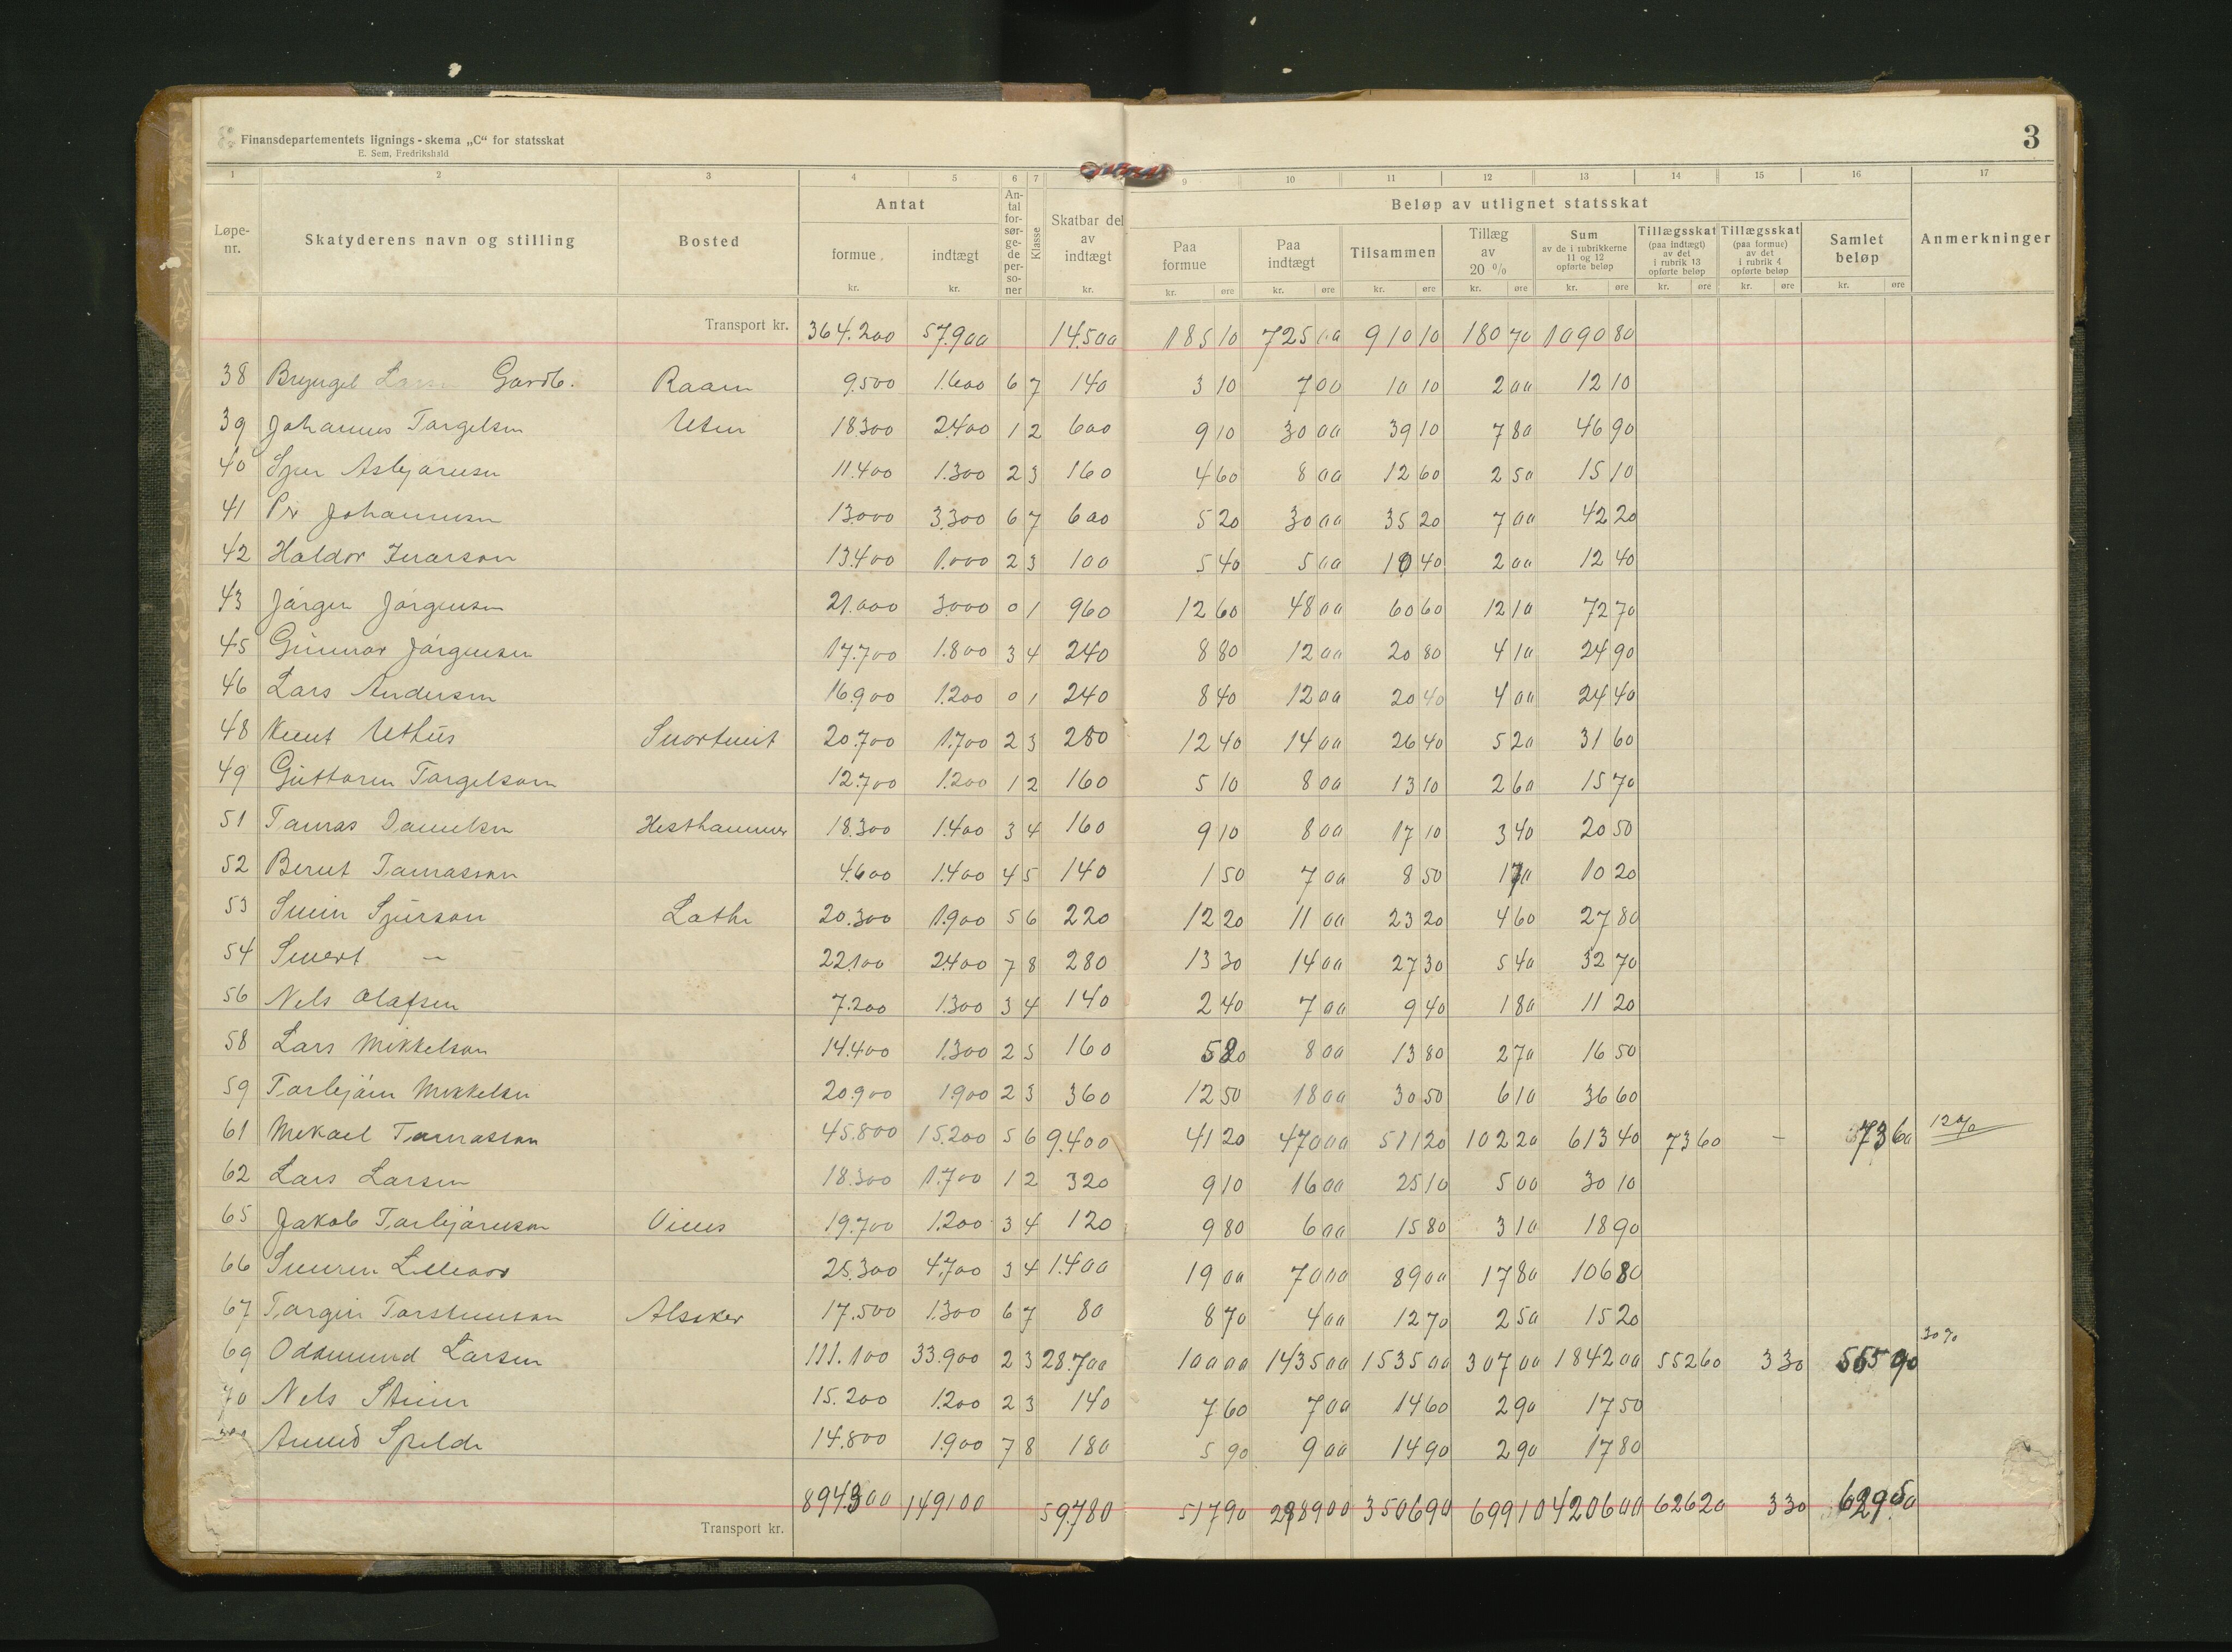 Finansdepartementets lignings-skema „C“ for statsskat
E. Sem, Fredrikshald
3
1 2 3 4 5 6 7 9 10 11 12 13 14 15 16 17
Løpe-nr. Skatyderens navn og stilling Bosted Antat formue kr. indtægt kr. Antal forsørgede personer Klasse Skatbar del av indtægt kr. Beløp av utlignet statsskat Paa formue kr. øre Paa indtægt kr. øre Tilsammen kr. øre Tillæg av 20 % kr. øre Sum av de i rubrikkerne 11 og 12 opførte beløp kr. øre Tillægsskat (paa indtægt) av det i rubrik 13 opførte beløp kr. øre Tillægsskat (paa formue) av det i rubrik 4 opførte beløp kr. øre Samlet beløp kr. øre Anmerkninger
Transport kr. 364.200 57.900 14.500 185 10 725 00 910 10 180 70 1090 80
38 Bryngel Larsen Gardb. Raaen 9.500 1.600 6 7 140 3 10 7 00 10 10 2 00 12 10
39 Johannes Torgelsen Utsen 18.300 2.400 1 2 600 9 10 30 00 39 10 7 80 46 90
40 Sjur Asbjørnsen 11.400 1.300 2 3 160 4 60 8 00 12 60 2 50 15 10
41 Pr Johannesen 13.000 3.300 6 7 600 5 20 30 00 35 20 7 00 42 20
42 Haldor Ivarson 13.400 1.000 2 3 100 5 40 5 00 10 40 2 00 12 40
43 Jørgen Jørgensen 21.000 3.000 0 1 960 12 60 48 00 60 60 12 10 72 70
45 Gunnar Jørgensen 17.700 1.800 3 4 240 8 80 12 00 20 80 4 10 24 90
46 Lars Andersen 16.900 1.200 0 1 240 8 40 12 00 20 40 4 00 24 40
48 Knut Uthus 20.700 1.700 2 3 280 12 40 14 00 26 40 5 20 31 60
49 Guttorm Torgelson 12.700 1.200 1 2 160 5 10 8 00 13 10 2 60 15 70
51 Tomas Danielsen Hesthammer 18.300 1.400 3 4 160 9 10 8 00 17 10 3 40 20 50
52 Bernt Tomasson 4.600 1.400 4 5 140 1 50 7 00 8 50 1 70 10 20
53 Svein Sjurson Lothe 20.300 1.900 5 6 220 12 20 11 00 23 20 4 60 27 80
54 Sivert — 22.100 2.400 7 8 280 13 30 14 00 27 30 5 40 32 70
56 Nels Olafsen 7.200 1.300 3 4 140 2 40 7 00 9 40 1 80 11 20
58 Lars Mikkelson 14.400 1.300 2 3 160 5 80 8 00 13 80 2 70 16 50
59 Torbjørn Mikkelsen 20.900 1.900 2 3 360 12 50 18 00 30 50 6 10 36 60
61 Mikael Tomasson 45.800 15.200 5 6 9.400 41 20 470 00 511 20 102 20 613 40 73 60 — 73 60 12%
62 Lars Larsen 18.300 1.700 1 2 320 9 10 16 00 25 10 5 00 30 10
65 Jakob Torbjørnson Vines 19.700 1.200 3 4 120 9 80 6 00 15 80 3 10 18 90
66 25.300 4.700 3 4 1.400 19 00 70 00 89 00 17 80 106 80
67 Torgeir Torsteinson Alsaker 17.500 1.300 6 7 80 8 70 4 00 12 70 2 50 15 20
69 Oddmund Larsen 111.100 33.900 2 3 28.700 100 00 1435 00 1535 00 307 00 1842 00 552 60 3 30 555 90 30%
70 Nels Steine 15.200 1.200 2 3 140 7 60 7 00 14 60 2 90 17 50
Spilde 14.800 1.900 7 8 180 5 90 9 00 14 90 2 90 17 80
Transport kr. 894.300 149100 59780 517 90 2989 00 3506 90 699 10 4206 00 626 20 3 30 629 50